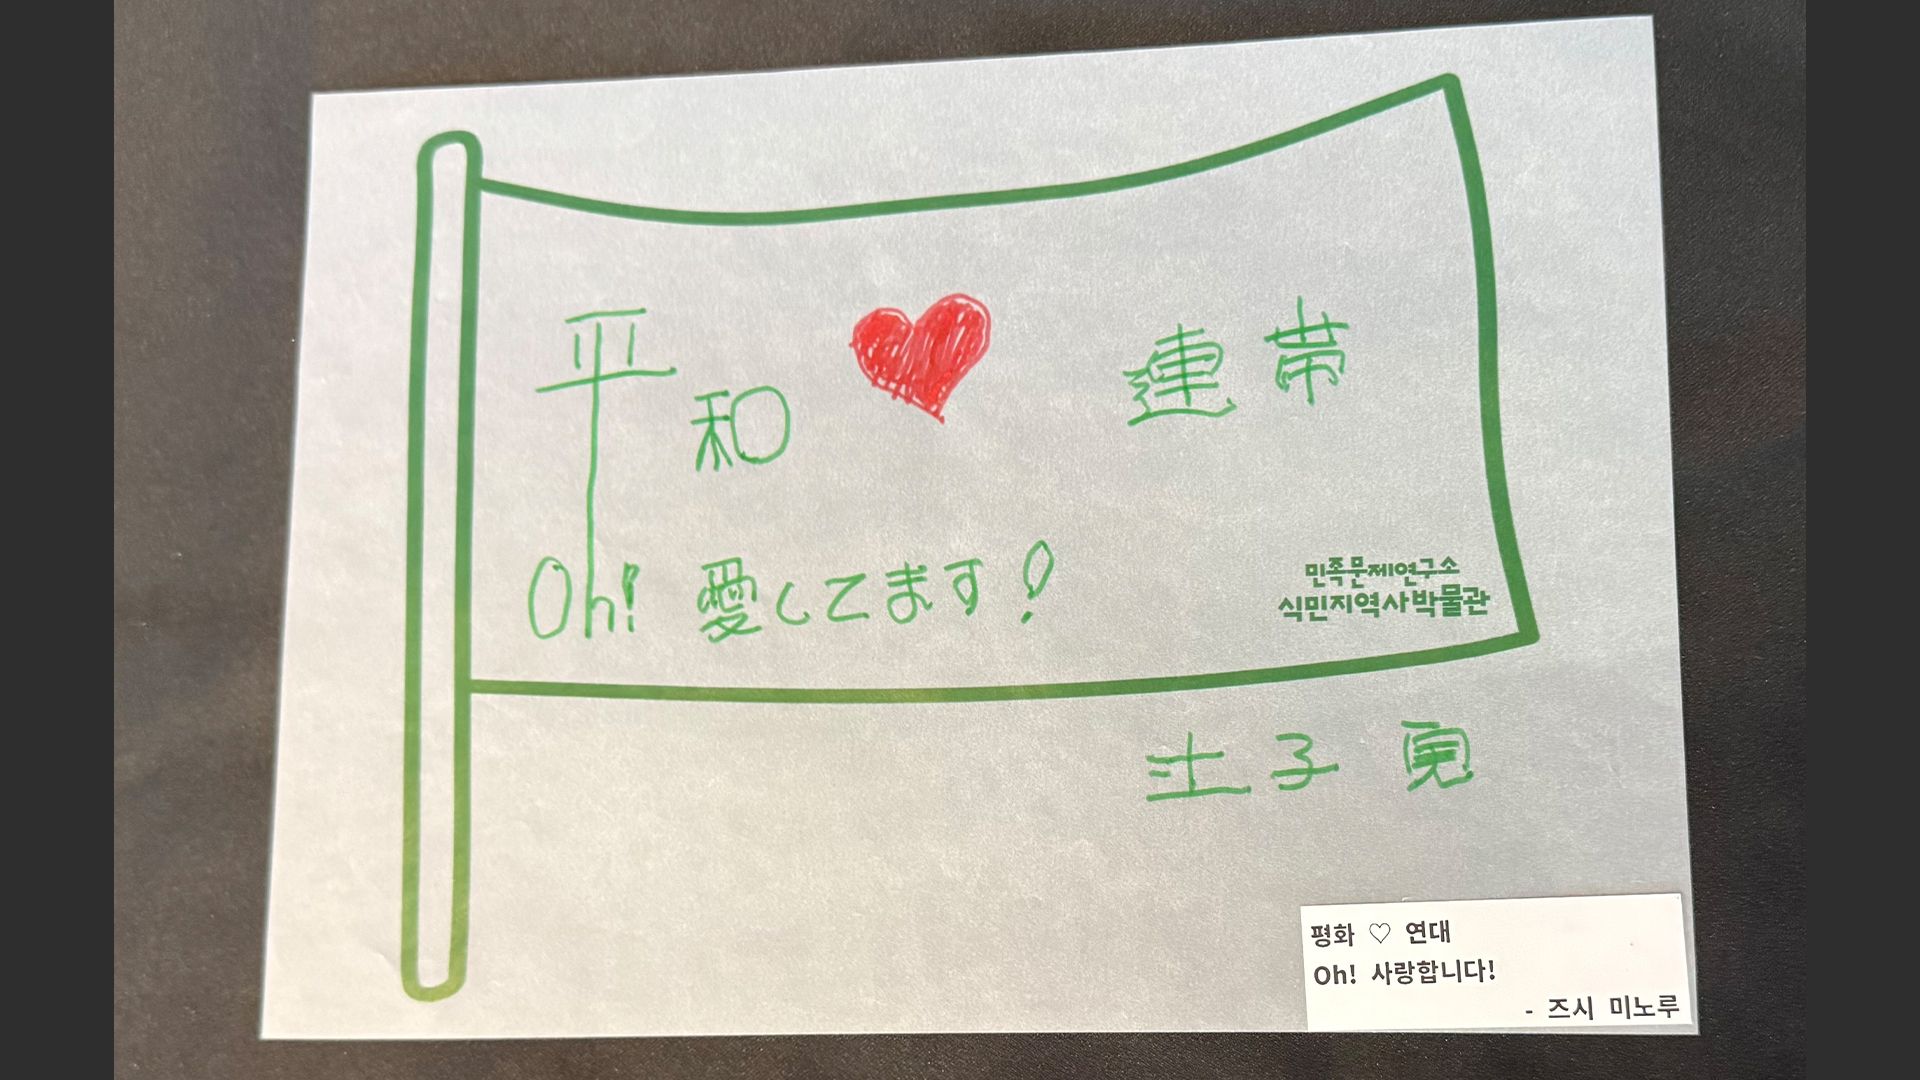 平和 ♥ 連帯
Oh! 愛してます!
민족문제연구소
식민지역사박물관
辻子 実
평화 ♡ 연대
Oh! 사랑합니다!
- 즈시 미노루